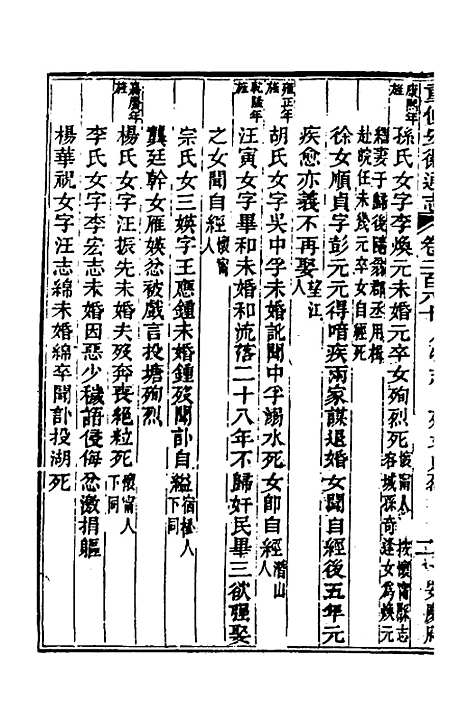 重修安徽通志 卷二百六十
康熙年旌
孫氏女字李煥元未婚元卒女殉烈死懷甯人 按懷甯縣志容城孫奇逢女為煥元
繼妻于歸後隨翁郡丞用楫赴皖任未幾元卒女自經死
徐女順貞字彭元元得喑疾兩家謀退婚女聞自經後五年元
疾愈亦義不再娶望江人
雍正年旌
胡氏女字吳中孚未婚訛聞中孚溺水死女即自經潛山人
乾隆年旌
汪寅女字畢和未婚和流落二十八年不歸奸民畢三欲强娶
之女聞自經懷甯人
宗氏女三媖字王應鍾未婚鍾歿聞訃自縊宿松人下同
龔廷幹女雁媖忿被戲言投塘殉烈
嘉慶年旌
楊氏女字汪振先未婚夫歿奔喪絕粒死懷甯人下同
李氏女字李宏志未婚因惡少穢語侵侮忿激捐軀
楊華祝女字汪志綿未婚綿卒聞訃投湖死
安慶府